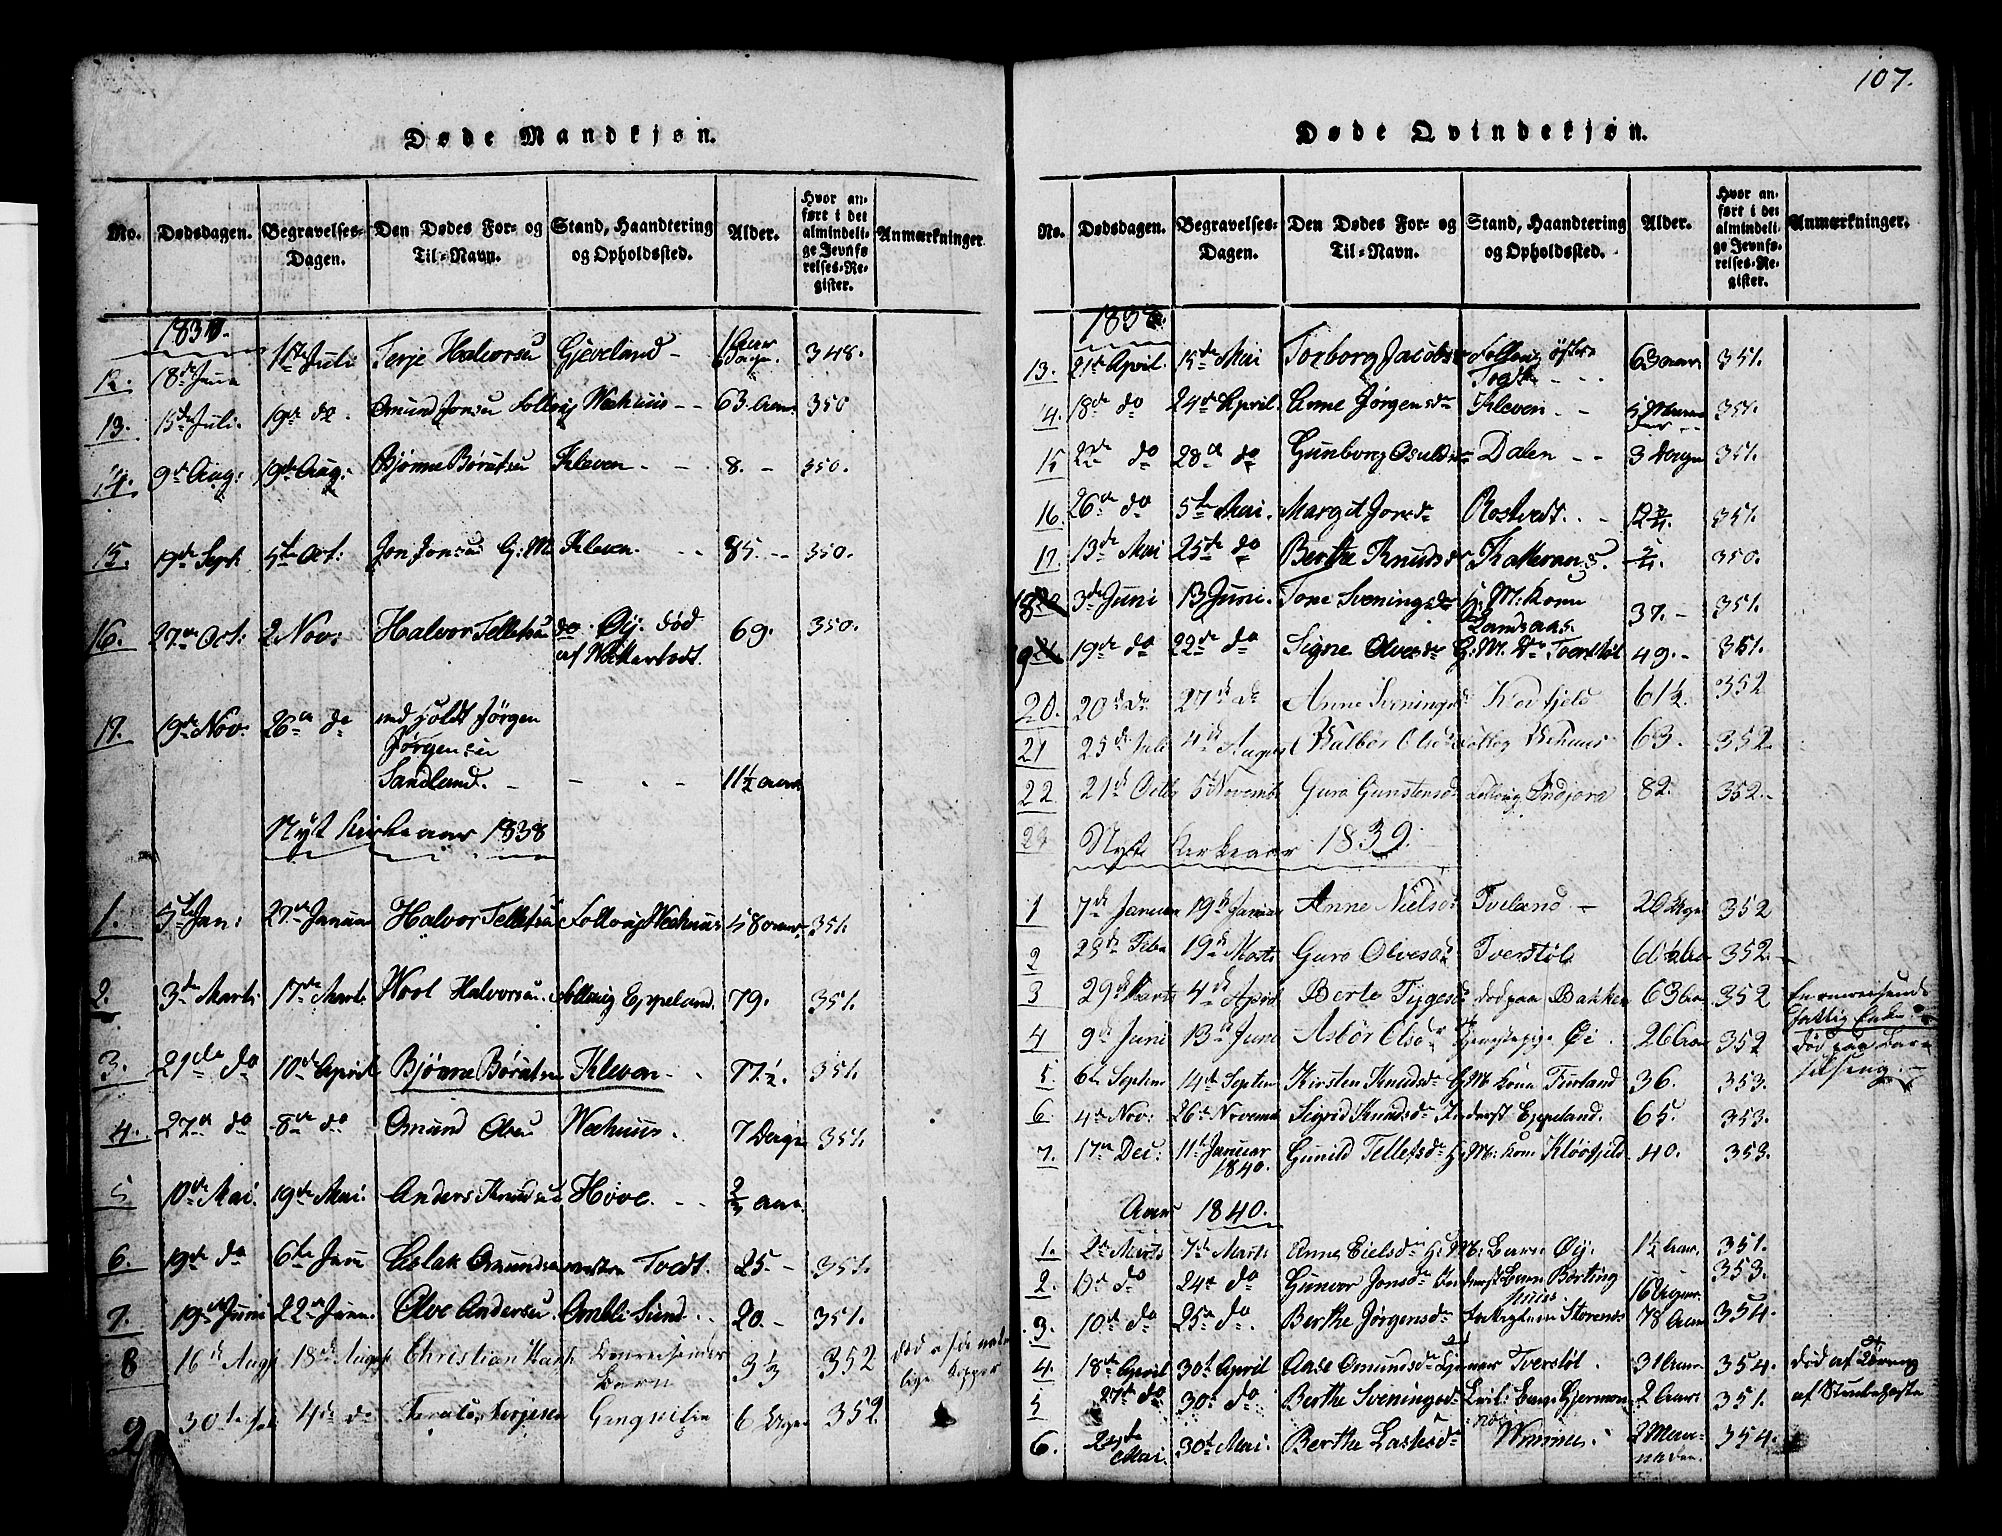 107.
Døde Mandkjøn.
No. Dødsdagen. Begravelses-Dagen. Den Dødes For- og Til-Navn. Stand, Haandtering og Opholdssted. Alder. Hvor anført i det almindelige Jevnførelses-Register. Anmærkninger
1837.
12. 18de Juni 1ste Juli Terje Halvorsen Gjeveland - 1 Aar Dage 348.
13. 15de Juli 19de do. Omund Jonsen Follovig Neehuus - - 63 Aar 350
14. 9de Aug: 19de Aug: Bjønne Børutsen Kleven - - 8. - 350.
15. 19de Sept. 5te Oct: Jon Jonsen G:M. Kleven. - - 85. - - 350.
16. 27de Oct: 2 Nov: Halvor Tellefsen do. Øij. død 69. 350.
af Vattersodt.
17. 19de Nov. 26de do ind Holdt Jørgen
Jørgensen
Sandland. - - - - 11½ Aar
Nyt Kirkeaar 1838
1. 5te Jan: 27de Januar Halvor Tellefsen Follovig Neehuus 58 Aar. 351.
2. 3de Marts 17de Mart. Wool Halvorsen. Follovig Eppeland. 79. 351.
3. 21de do 10de April Bjønne Børutsen Kleven - - 77½. 351.
4. 27de do 8de do Omund Olsen Neehuus. 7 Dage 351.
5 10de Mai. 19de Mai. Anders Knudsen Hove. - - Aar
6. 19de do 6te Juni Aslak Omundsen vestre Tvedt. 25. - 351.
7. 19de Juni 22de Juni. Olve Andersen Ambli Sund. - 20. - 351.
8 16de Aug 18de Aug Christian Omreisendes 3⅓ 352 død af de natur-
Barn lige Kopper
9 30te 4de do Terjesen 6 Uger 352
Døde Qvindekjøn.
No. Dødsdagen. Begravelses-Dagen. Den Dødes For- og Til-Navn. Stand, Haandtering og Opholdssted. Alder. Hvor anført i det almindelige Jevnførelses-Register. Anmærkninger.
1838.
13. 21de April. 15de Mai Torborg Jacobsd Follovig østre 63 Aar. 351.
Tvedt - - -
14. 18de do 24de April Anne Jørgensdr Kleven - - 5 Maane- 351.
der - -
15 22de do 28de do Gunborg Osuldsdr Dalen - - 3 Dage 351.
16. 26de do 5te Mai. Margit Jonsdr Rostvedt. - - 12 351.
17. 13de Mai 25de do Berthe Knudsdr Katterans. 350.
18 3de Juni 13 Juni. Tone Sveningsdr G:M:Kone 37. - 351.
Landaas.
19 19de do 22de do Signe Olvesdr G:M. Do Tverstøl 49. - 351.
20. 20de do 27de do Anne Sveningsd 61½. 352
21 25de Juli 4de August Valbør Olsd Follog Vehuus 63. 352
22. 21de Octb 5te Novemb Guro Gunstensd Follovig Indjore 82. 352. -
23 Nyt Kirkeaar 1839.
1 7de Januar 19de Januar Anne Nielsd Tveland. - 20 Uger 352
2 28de Febr 19de Marts Guro Olvesd Tverstøl 352. -
3 29de Marts 4de April Berte Tygesd død paa Bakken 63 Aar 352 En omreisende
fattig Enke
4 9de Juni 13de Juni Asbør Olsdr Øi. 26 Aar 352 død paa Barn
selseng. -
5. 6te Septem 14de Septem Kirsten Knudsdr G:M. Kone Tveland 36. 353.
6. 4de Nov: 26de Novemb Sigrid Knudsdr Inderst Eppeland. 65. 353.
7. 17de Dec: 11te Januar Gunild Tellefsdr G:M: Kone Kløvfjeld 40. 353.
1840.
Aar 1840.
1. 2de Marts 7de Marts Anne Eielsdr G:M: Barn Øij. 1½ Aar. 351.
2. 19de do 24de do Gunvor Jonsdr Inderst Barn Børting- 16 Uger. 353.
huus.
3. 10de do 25de do Berthe Jørgensdr Storenes 78 Aar 354.
4. 18de April 30te April Aase Omundsdr Tverstøl. 31 Aar 354. død af Tæring
5 27de do 30te do Berthe Sveningsdr Barn Hjermon- 2 Aar 351. af Strubehoste
næs
6. 24de 30te Mai. Berthe Larsdr Wimmes. 2 Maa- 354.
Mai. neder.